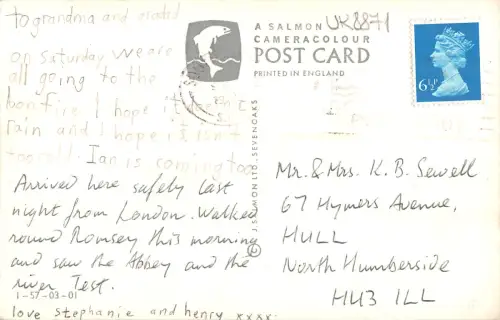 to grandma and
on saturday we are
all going to the
bonfire I hope it
rain and I hope it isn't
too cold. Ian is coming too
Arrived here safely last
night from London. Walked
round Romsey this morning
and saw the Abbey and the
river Test.
1-57-03-01
love stephanie and henry xxxx.
A SALMON
CAMERACOLOUR
POST CARD
PRINTED IN ENGLAND
© J. SALMON LTD., SEVENOAKS
UK8871
6½P
Mr. & Mrs. K. B. Sewell
67 Hymers Avenue,
HULL
North Humberside
HU3 1LL